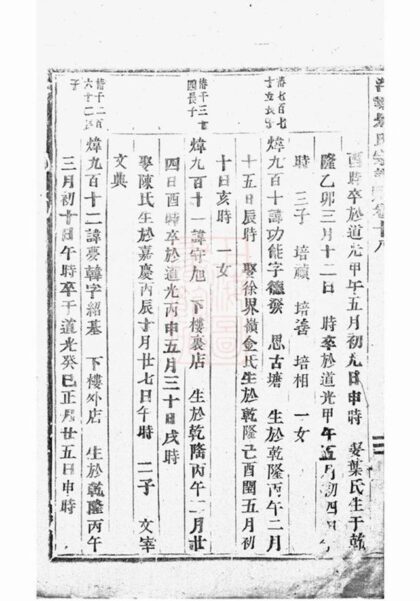 酉時卒於道光甲午五月初九日申時　娶葉氏生于乾
隆乙卯三月十二日　時卒於道光甲午五月初四日
時　三子　培碩　培善　培相　一女
濬七百七
煒九百十諱功能字德發　恩古塘　生於乾隆丙午二月
十五日辰時　娶徐界嶺金氏生於乾隆己酉閏五月初
十日亥時　一女
濬千三
四長子
煒九百十一諱守旭　下樓裏店　生於乾隆丙午二月廿
四日酉時卒於道光丙申五月三十日戌時
娶陳氏生於嘉慶丙辰十月廿七日午時　二子　文宰
文典
濬千二百
六十二
子
煒九百十二諱慶韓字紹基　下樓外店　生於乾隆丙午
三月初十日午時卒于道光癸巳正月廿五日申時